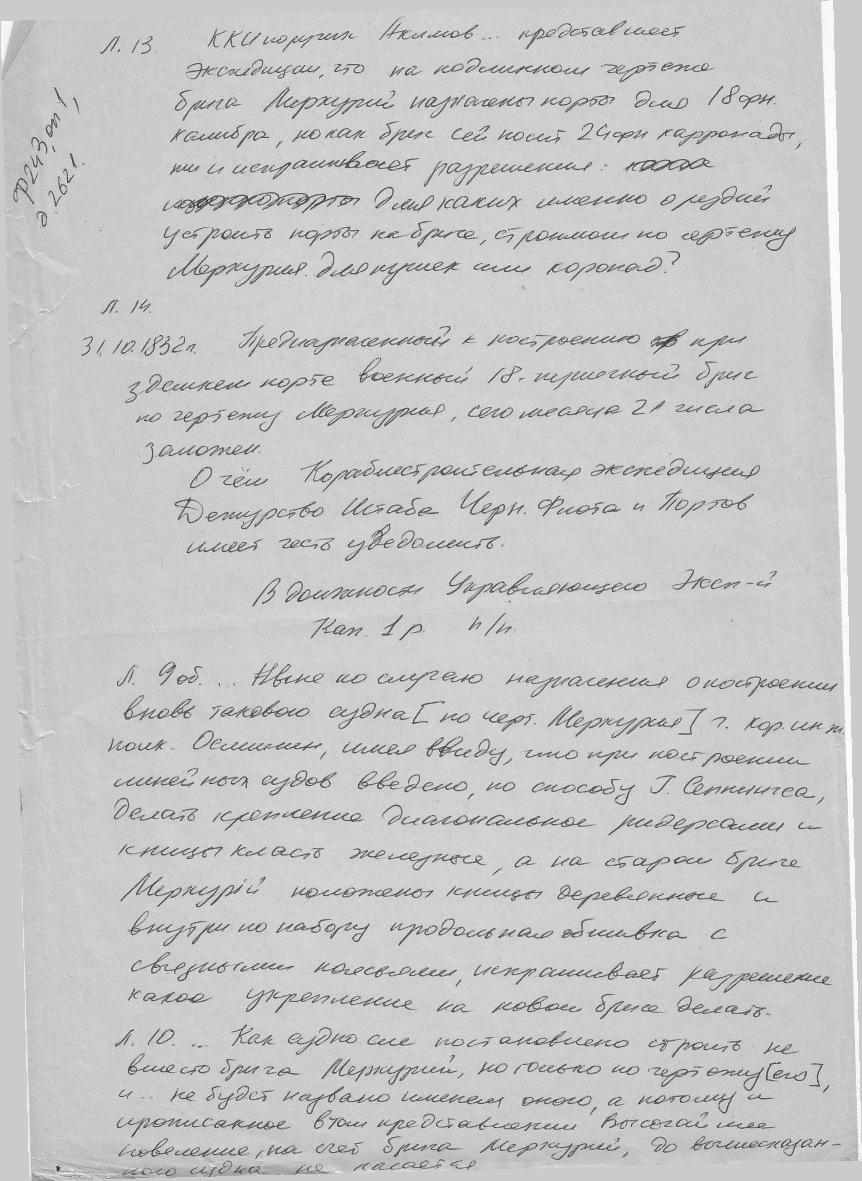 Ф243, оп 1,
д. 2621.
Л. 13. ККИ поручик Акимов... представляет
Экспедиции, что на подлинном чертеже
брига Меркурий назначены порты для 18 фн.
калибра, но как бриг сей носит 24 фн карронады,
то и испрашивает разрешения:
для каких именно орудий
устроить порты на бриге, строимом по чертежу
Меркурия. для пушек или коронад?
Л. 14.
31.10.1832 г. Предназначенный к построению при
здешнем порте военный 18-пушечный бриг
по чертежу Меркурия, сего месяца 21 числа
заложен.
О чём Кораблестроительная экспедиция
Дежурство Штаба Черн. Флота и Портов
имеет честь уведомить.
В должности Управляющего Эксп-й
Кап. 1 р. п/п.
Л. 9 об. ... Ныне по случаю назначения о построении
вновь такового судна [по черт. Меркурия] г. кор. инж.
полк. Осминин, имея ввиду, что при построении
линейных судов введено, по способу Г. Сеппингса,
делать крепление диагональное ридерсами и
кницы класть железные, а на старом бриге
Меркурiй положены кницы деревянные и
внутри по набору продольная обшивка с
связными поясьями, испрашивает разрешение
какое укрепление на новом бриге делать.
Л. 10. ... Как судно сие постановлено строить не
вместо брига Меркурий, но только по чертежу [его],
и ... не будет названо именем оного, а потому и
прописанное в том представлении Высочайшее
повеление, на счет брига Меркурий, до вышесказан-
ного судна не касается